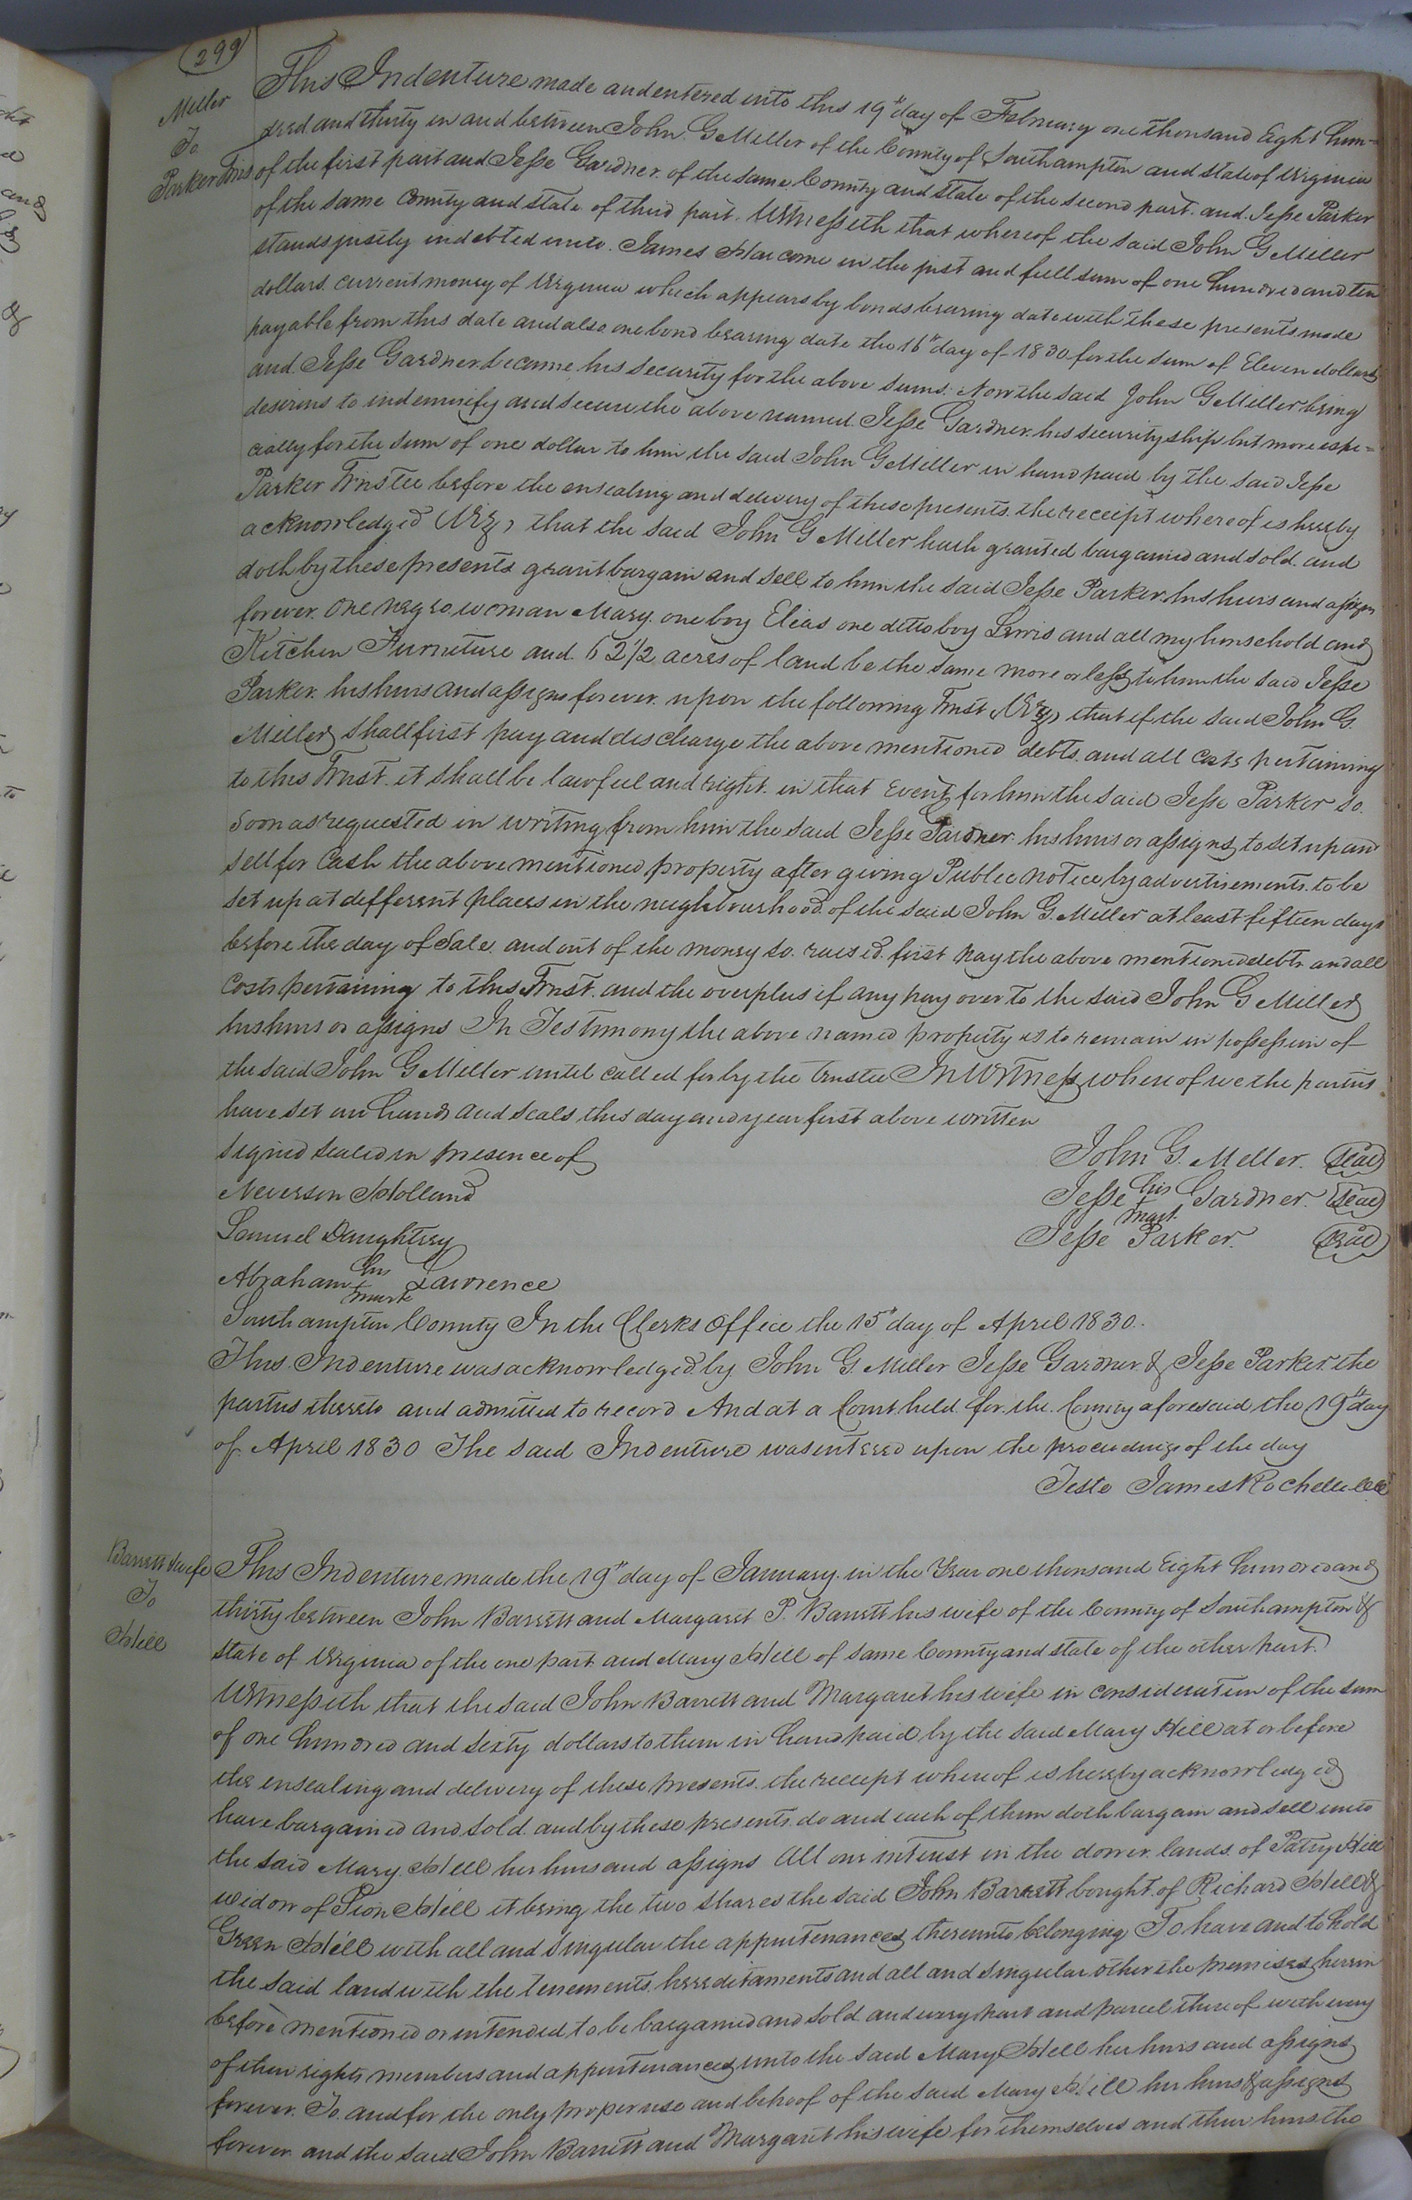 299
Miller
To
Parker Trus
This Indenture made and entered into this 19th day of February one thousand Eight hun-
dred and thirty in and between John G Miller of the County of Southampton and state of Virginia
of the first part and Jesse Gardner of the same County and state of the second part and Jesse Parker
of the same County and state of third part. Witnesseth that whereof the said John G Miller
stands justly indebted unto James Harcome in the just and full sum of one hundred and ten
dollars current money of Virginia which appears by bonds bearing date with these presents made
payable from this date and also one bond bearing date the 16th day of 1830 for the sum of Eleven dollars
and Jesse Gardner became his security for the above sums. Now the said John G Miller being
desirous to indemnify and secure the above named Jesse Gardner his securityship but more espe=
cially for the sum of one dollar to him the said John G Miller in hand paid by the said Jesse
Parker Trustee before the ensealing and delivery of these presents the receipt whereof is hereby
acknowledged (Viz) that the said John G Miller hath granted bargained and sold and
doth by these presents grant bargain and sell to him the said Jesse Parker his heirs and assigns
forever. One negro woman Mary one boy Elias one ditto boy Lewis and all my household and
Kitchen Furniture and 62 1/2 acres of land be the same more or less to him the said Jesse
Parker his heirs and assigns forever upon the following Trust (Viz) that if the said John G.
Miller shall first pay and discharge the above mentioned debts and all costs pertaining
to this Trust. it shall be lawfull and right in that Event for him the said Jesse Parker so
soon as requested in writing from him the said Jesse Gardner his heirs or assigns to set up and
sell for Cash the above mentioned property after giving Public notice by advertisements to be
set up at different places in the neighbourhood of the said John G. Miller at least fifteen days
before the day of Sale and out of the money so raised first pay the above mentioned debts and all
Costs pertaining to this Trust and the overplus if any pay over to the said John G Miller
his heirs or assigns In Testimony the above named property is to remain in possession of
the said John G Miller until called for by the Trustee In Witness whereof we the parties
have set our hands and seals this day and year first above written
Signed sealed in presence of
John G. Miller. (Seal)
Neverson Holland
Jesse his mark Gardner. (Seal)
Samuel Daughtrey
Jesse Parker. (Seal)
Abraham his mark Lawrence
Southampton County In the Clerks Office the 15th day of April 1830.
This Indenture was acknowledged by John G. Miller Jesse Gardner & Jesse Parker the
parties thereto and admitted to record And at a Court held for the County aforesaid the 19th day
of April 1830 The said Indenture was entered upon the proceedings of the day
Teste James Rochelle
Barrett & wife
To
Hill
This Indenture made the 19th day of January in the Year one thousand Eight hundred and
thirty between John Barrett and Margaret P. Barrett his wife of the County of Southampton &
state of Virginia of the one part and Mary Hill of same County and state of the other part.
Witnesseth that the said John Barrett and Margaret his wife in consideration of the sum
of one hundred and sixty dollars to them in hand paid by the said Mary Hill at or before
the ensealing and delivery of these presents the receipt whereof is hereby acknowledged
have bargained and sold and by these presents do and each of them doth bargain and sell unto
the said Mary Hill her heirs and assigns All our interest in the dower lands of Patsy Hill
widow of Sion Hill it being the two shares the said John Barrett bought of Richard Hill &
Green Hill with all and singular the appurtenances thereunto belonging To have and to hold
the said land with the tenements hereditaments and all and singular other the premises herein
before mentioned or intended to be bargained and sold and every part and parcel thereof with every
of their rights members and appurtenances unto the said Mary Hill her heirs and assigns
forever. To and for the only proper use and behoof of the said Mary Hill her heirs & assigns
forever and the said John Barrett and Margaret his wife for themselves and their heirs the